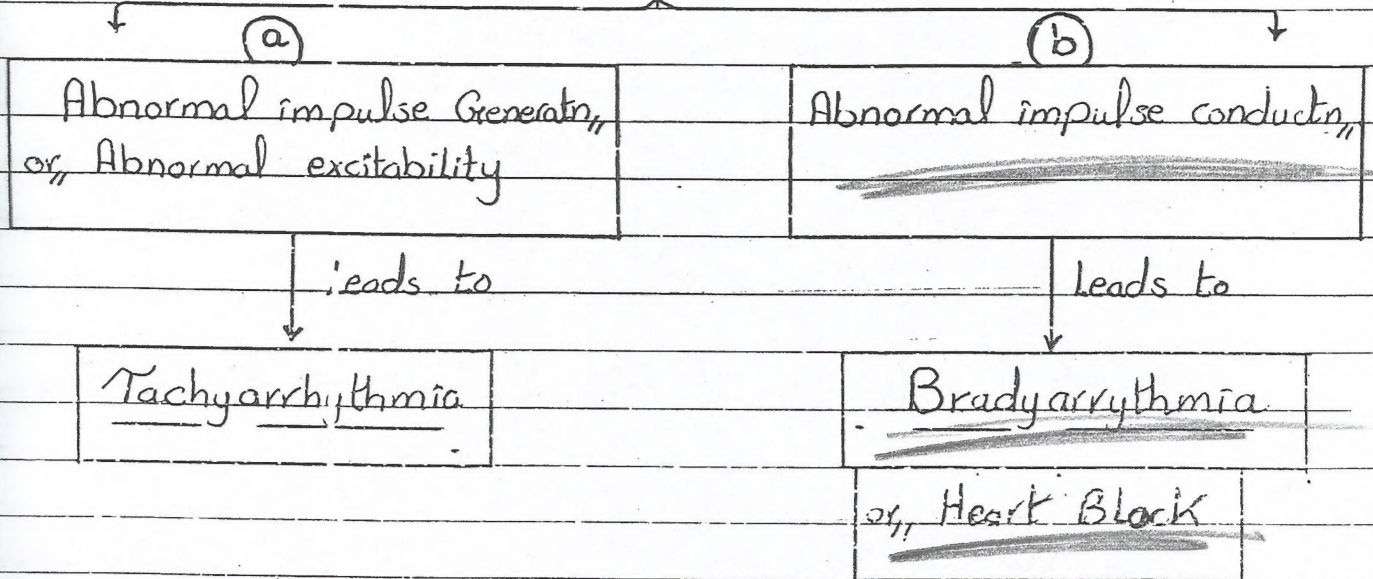 a
Abnormal impulse Generatn,,
or,, Abnormal excitability
leads to
Tachyarrhythmia
b
Abnormal impulse conductn,,
Leads to
Bradyarrythmia
or,, Heart Block